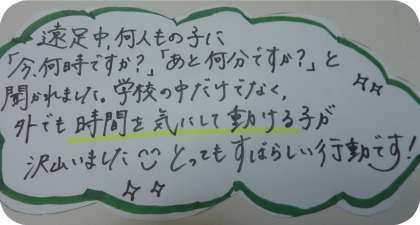 遠足中、何人もの子に
「今、何時ですか?」「あと何分ですか?」と
聞かれました。学校の中だけでなく、
外でも時間を気にして動ける子が
沢山いました とってもすばらしい行動です!